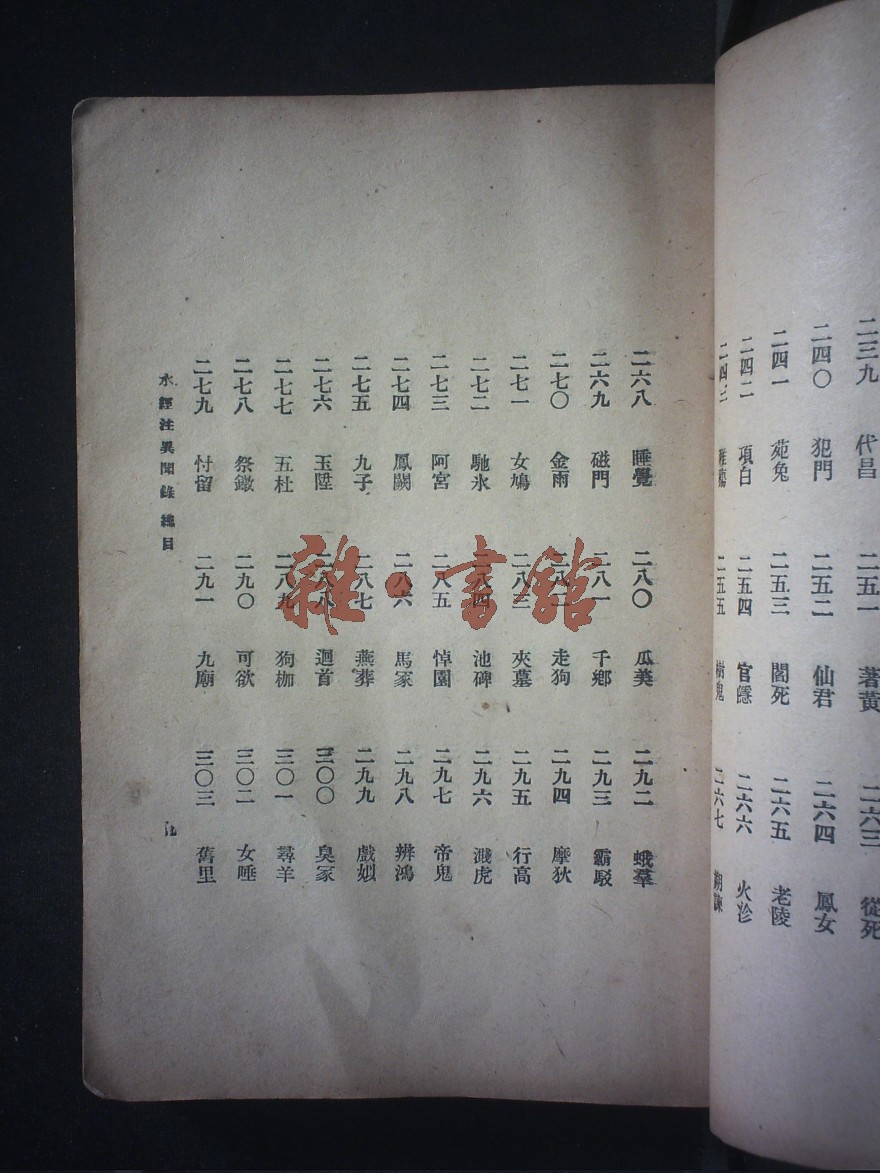 二三九 代昌 二五一 著黃 二六三 從死
二四〇 犯門 二五二 仙君 二六四 鳳女
二四一 苑兔 二五三 閣死 二六五 老陵
二四二 項白 二五四 官隱 二六六 火沴
二四三 二五五 樹鬼 二六七
二六八 睡覺 二八〇 瓜美 二九二 蛾羣
二六九 磁門 二八一 千鄉 二九三 霸駁
二七〇 金雨 二八二 走狗 二九四 摩狄
二七一 女鳩 二八三 夾墓 二九五 行高
二七二 馳氷 二八四 池碑 二九六 濺虎
二七三 阿宮 二八五 悼園 二九七 帝鬼
二七四 鳳闕 二八六 馬冢 二九八 辨鴻
二七五 九子 二八七 燕葬 二九九 戲姒
二七六 玉陞 二八八 迴首 三〇〇 臭冢
二七七 五杜 二八九 狗枷 三〇一 尋羊
二七八 祭鐓 二九〇 可欲 三〇二 女唾
二七九 忖留 二九一 九廟 三〇三 舊里
水經注異聞錄 總目 九
雜·書館